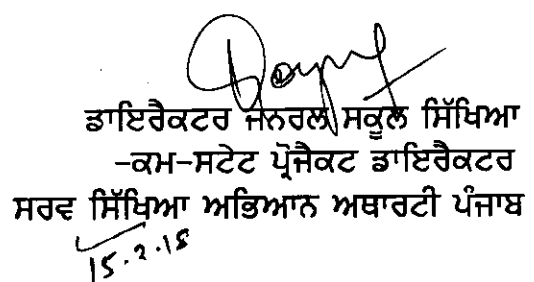 ਡਾਇਰੈਕਟਰ ਜਨਰਲ ਸਕੂਲ ਸਿੱਖਿਆ
-ਕਮ-ਸਟੇਟ ਪ੍ਰੋਜੈਕਟ ਡਾਇਰੈਕਟਰ
ਸਰਵ ਸਿੱਖਿਆ ਅਭਿਆਨ ਅਥਾਰਟੀ ਪੰਜਾਬ
15.2.18